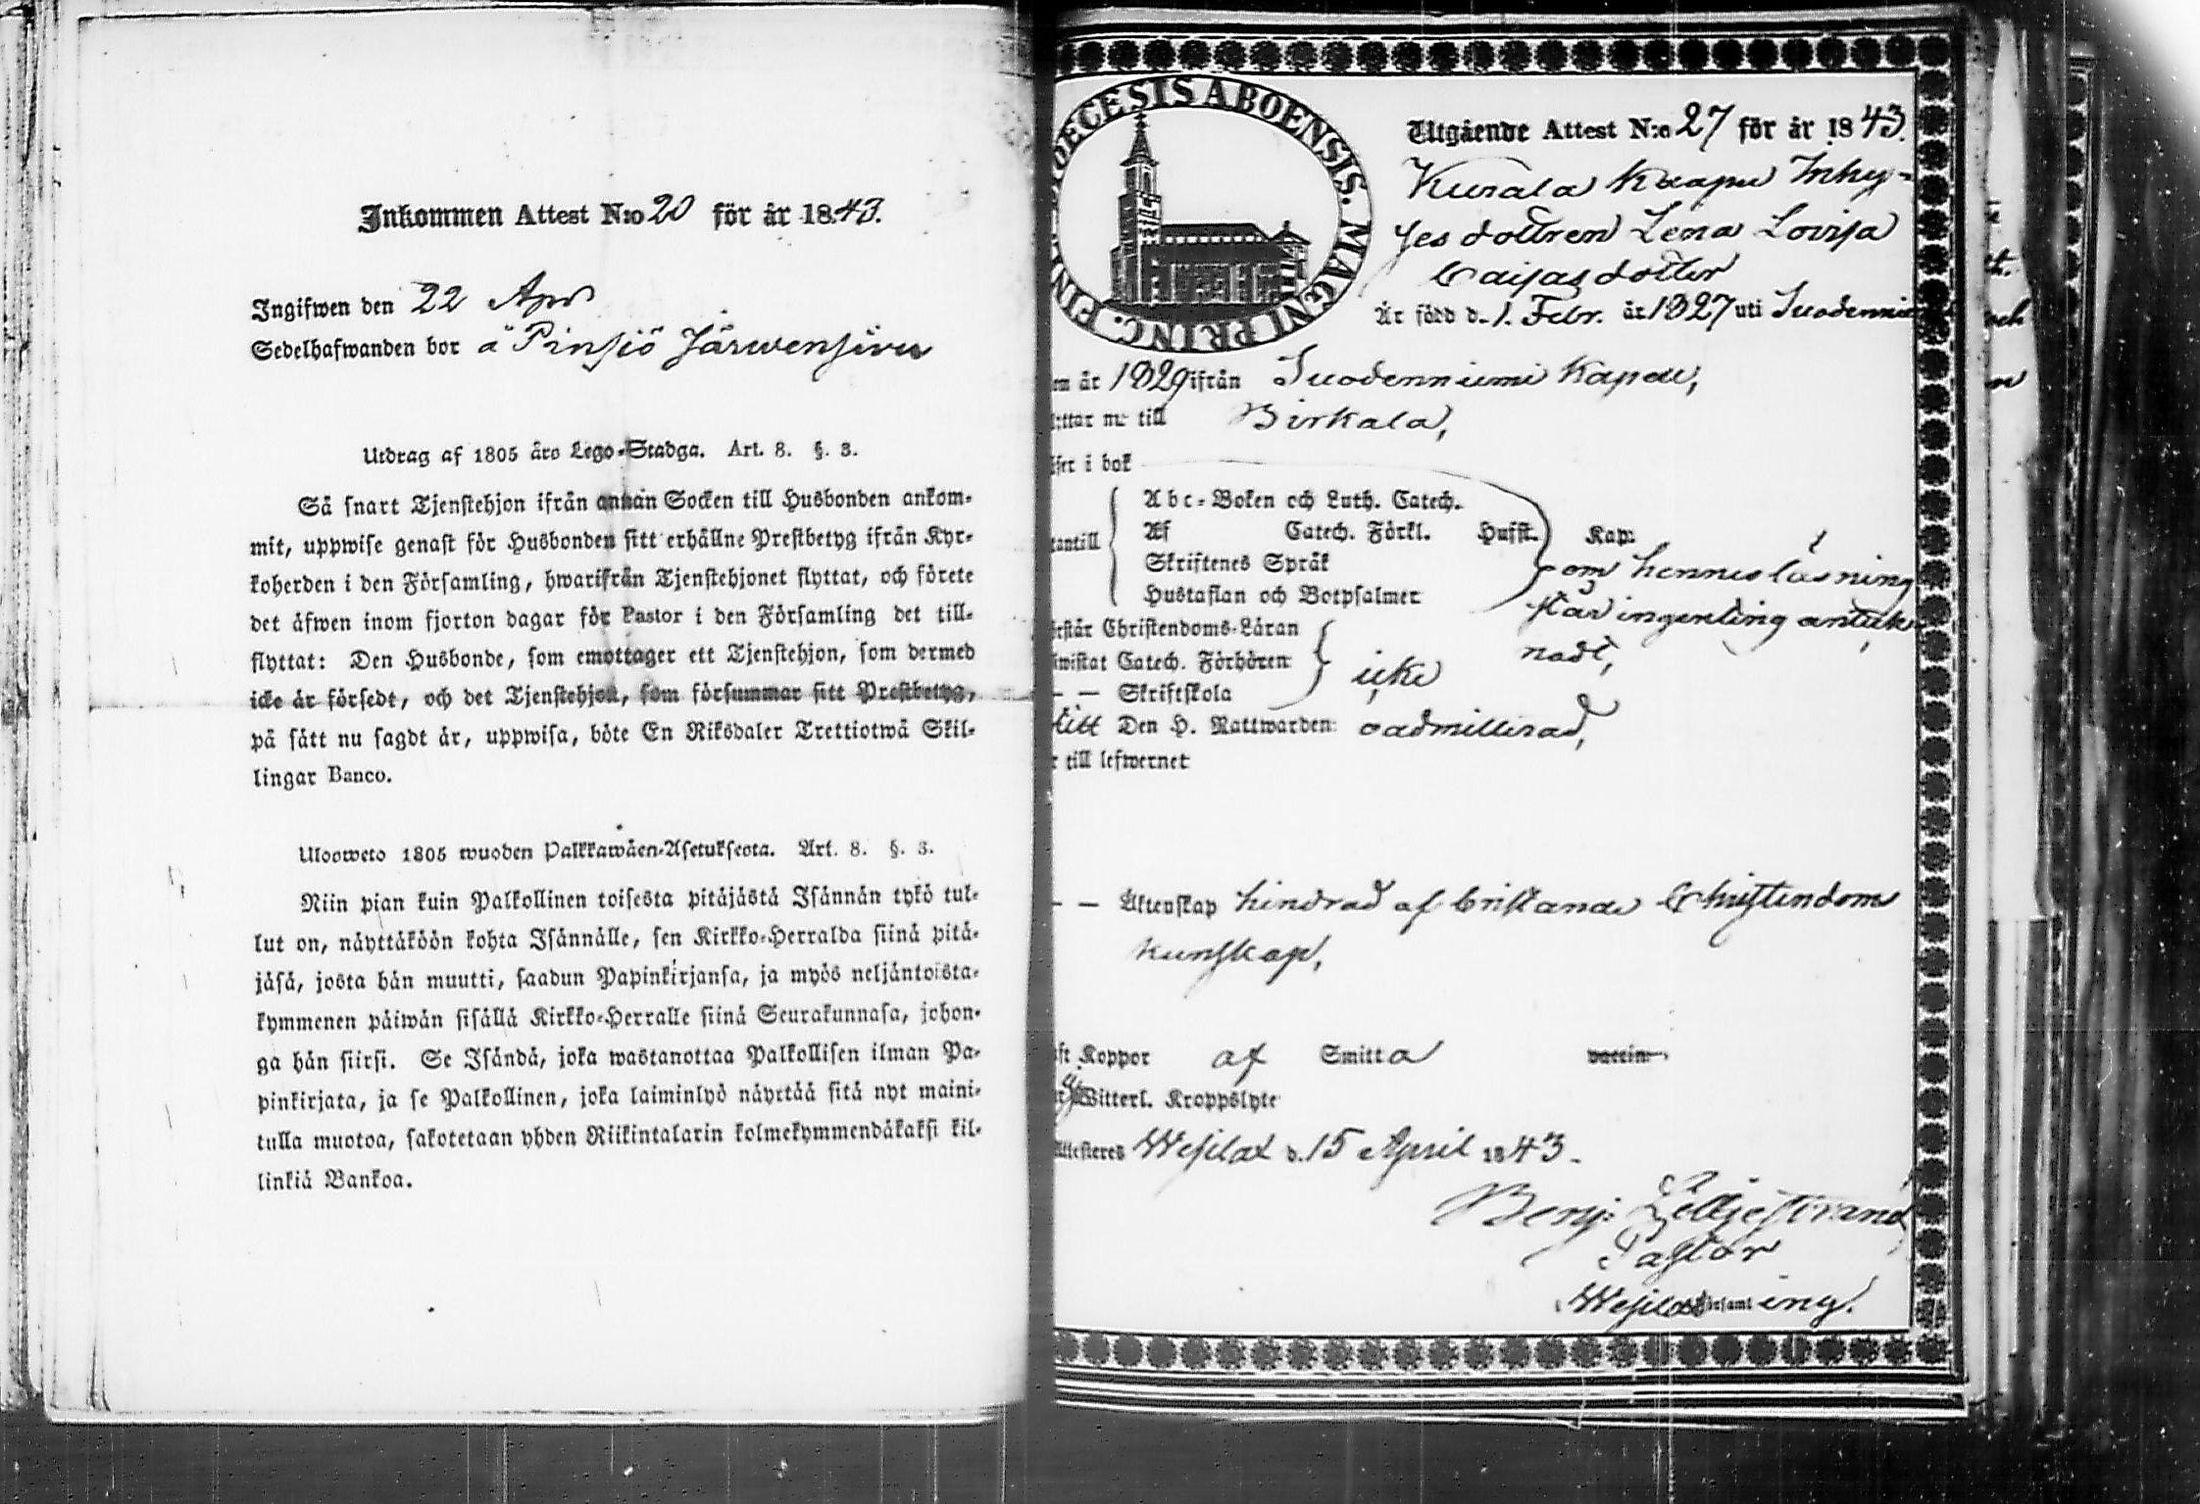 Inkommen Attest N:o 20 för år 1843.
Ingifwen den 22 Apr
Sedelhafwanden bor å Pinsiö Järwensivu
Utdrag af 1805 års Lego-Stadga. Art. 8. §. 3.
Så snart Tjenstehjon ifrån annan Socken till Husbonden ankom-
mit, uppwise genast för Husbonden sitt erhållne Prestbetyg ifrån Kyr-
koherden i den Församling, hwarifrån Tjenstehjonet flyttat, och förete
det äfwen inom fjorton dagar för Pastor i den Församling det till-
flyttat: Den Husbonde, som emottager ett Tjenstehjon, som dermed
icke är försedt, och det Tjenstehjon, som försummar sitt Prestbetyg,
på sätt nu sagdt är, uppwisa, böte En Riksdaler Trettiotwå Skil-
lingar Banco.
Ulosweto 1805 wuoden Palkkawäen-Asetuksesta. Art. 8. §. 3.
Niin pian kuin Palkollinen toisesta pitäjästä Isännän tykö tul-
lut on, näyttäköön kohta Isännälle, sen Kirkko-Herralda siinä pitä-
jäsä, josta hän muutti, saadun Papinkirjansa, ja myös neljäntoista-
kymmenen päiwän sisällä Kirkko-Herralle siinä Seurakunnasa, johon-
ga hän siirsi. Se Isändä, joka wastanottaa Palkollisen ilman Pa-
pinkirjata, ja se Palkollinen, joka laiminlyö näyttää sitä nyt maini-
tulla muotoa, sakotetaan yhden Riikintalarin kolmekymmendäkaksi kil-
linkiä Bankoa.
DIOECESIS ABOENSIS. MAGNI PRINC. FINL.
Utgående Attest N:o 27 för år 1843.
Kurala Kaapu Inhy-
ses dottren Lena Lovisa
Caisasdotter
Är född d. 1. Febr. år 1827 uti Suodenniemi
om år 1829 ifrån Suodenniemi Kapell,
yttar nu till Birkala,
äser i bok
Abc-Boken och Luth. Catech.
Af Catech. Förkl. Hufst. Kap.
utantill
Skriftenes Språk
Hustaflan och Botpsalmer
om hennes läsning
står ingenting anteck
nadt,
örstår Christendoms-Läran
wistat Catech. Förhören
icke
— — Skriftskola
titt Den H. Nattwarden: oadmitterad,
r till lefwernet
— — Äktenskap hindrad af bristande Christendoms
kunskap,
ft Koppor af Smitta vaccin.
Witterl. Kroppslyte
Attesteres Wesilax d. 15 April 1843.
Benj. Lilljestrand
Pastor
Wesilax församling.